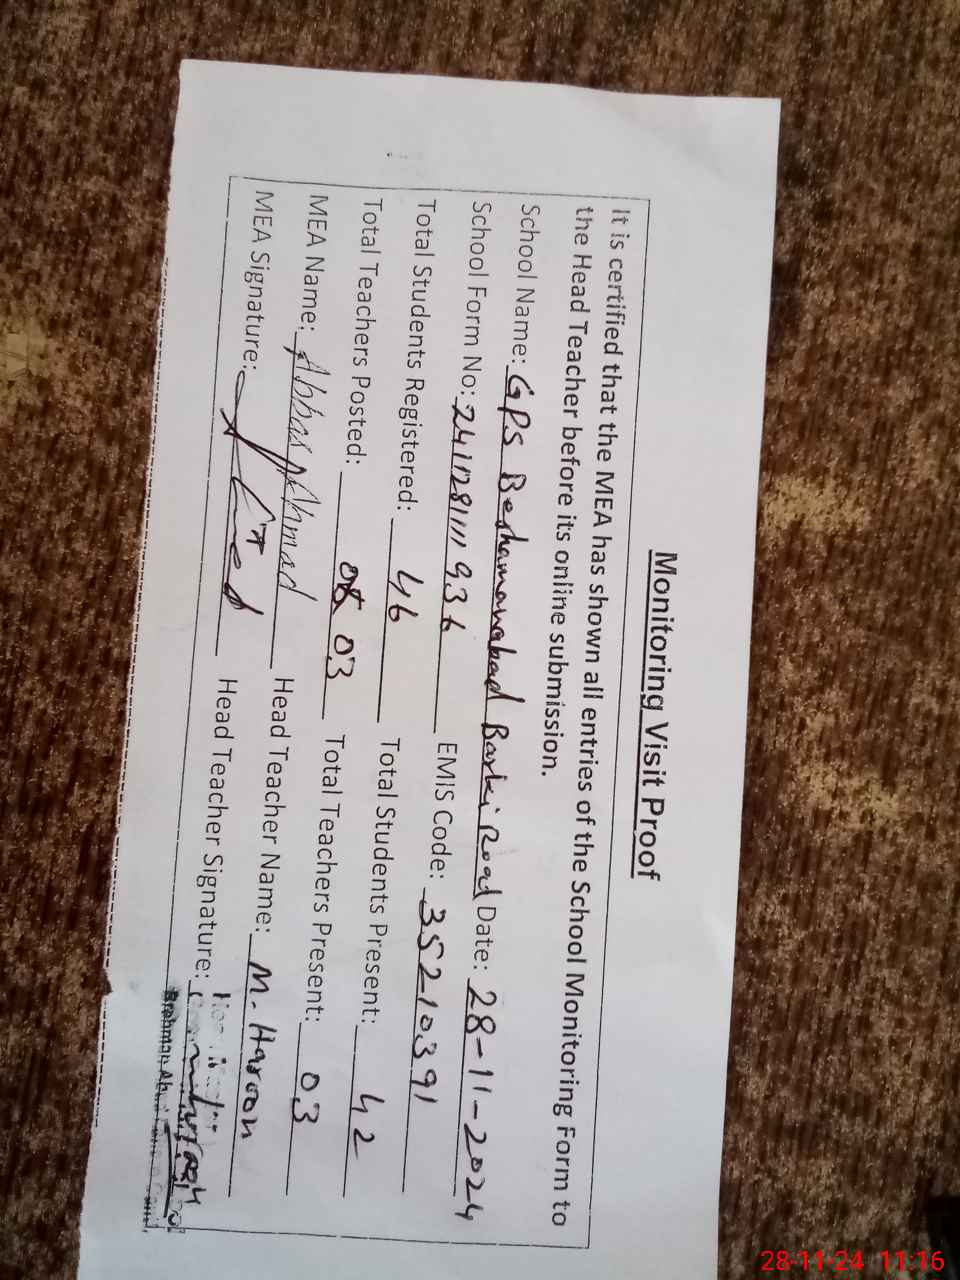 Monitoring Visit Proof
It is certified that the MEA has shown all entries of the School Monitoring Form to
the Head Teacher before its online submission.
School Name: GPS Brahmanabad Barki Road Date: 28-11-2024
School Form No: 2411281111936 EMIS Code: 35210391
Total Students Registered: 46 Total Students Present: 42
Total Teachers Posted: 03 Total Teachers Present: 03
MEA Name: Abbas Ahmad Head Teacher Name: M. Haroon
MEA Signature: Head Teacher Signature:
Brahman Ab
28-11-24 11:16